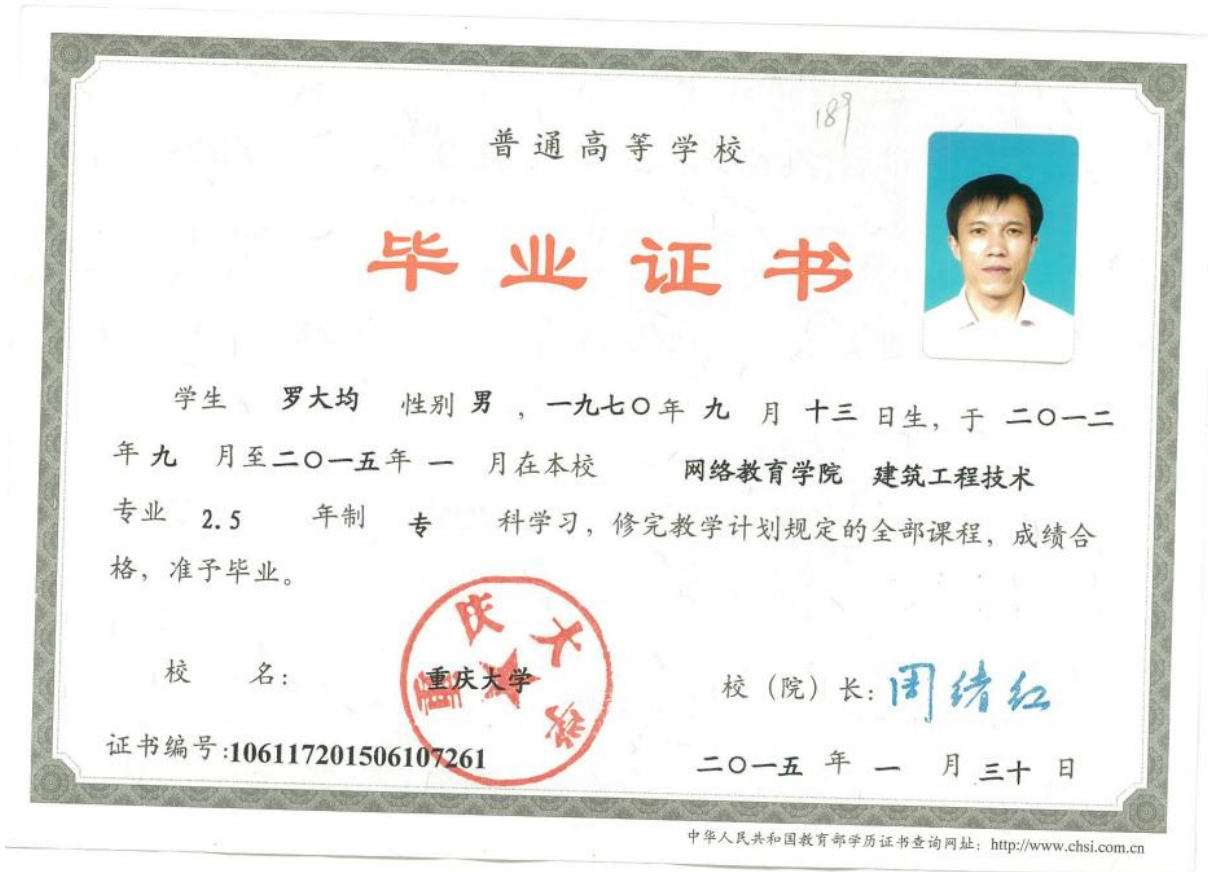 189
普通高等学校
毕业证书
学生 罗大均 性别 男 ，一九七〇年 九 月 十三 日生，于 二〇一二
年 九 月至二〇一五年 一 月在本校 网络教育学院 建筑工程技术
专业 2.5 年制 专 科学习，修完教学计划规定的全部课程，成绩合
格，准予毕业。
校 名：重庆大学
重庆大学
校（院）长：周绪红
证书编号:106117201506107261
二〇一五 年 一 月 三十 日
中华人民共和国教育部学历证书查询网址：http://www.chsi.com.cn